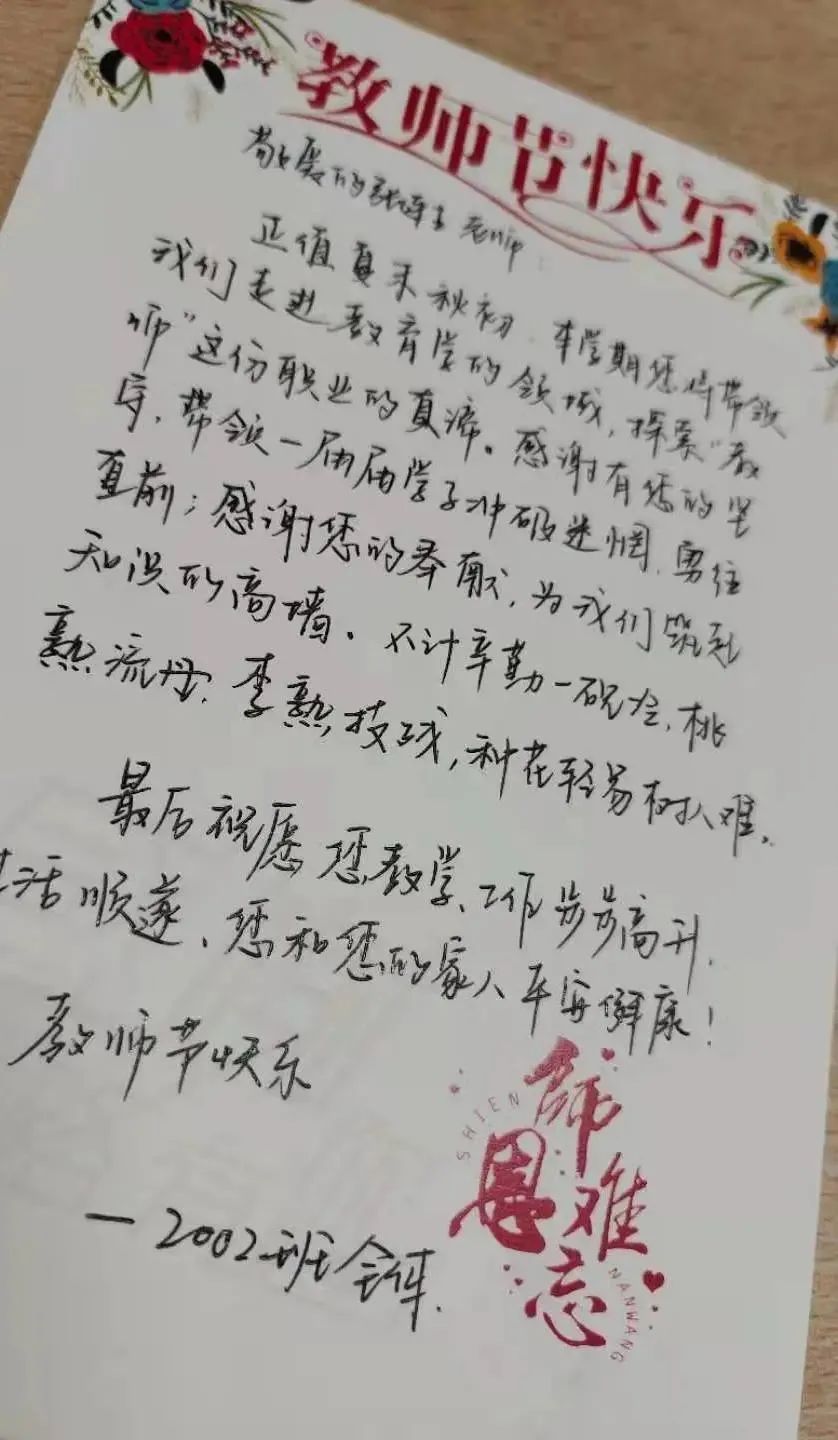 教师节快乐
敬爱的张 老师:
正值夏末秋初,本学期您将带领
我们走进教育学的领域,探索“教
师”这份职业的真谛。感谢有您的坚
守,带领一届届学子冲破迷惘,勇往
直前;感谢您的奉献,为我们筑起
知识的高墙。不计辛勤一砚寒,桃
熟流丹,李熟枝残,种花轻易树人难。
最后祝愿您教学、工作步步高升,
生活顺遂,您和您的家人平安健康!
教师节快乐
—2002班全体.
师恩难忘
SHIEN
NANWANG